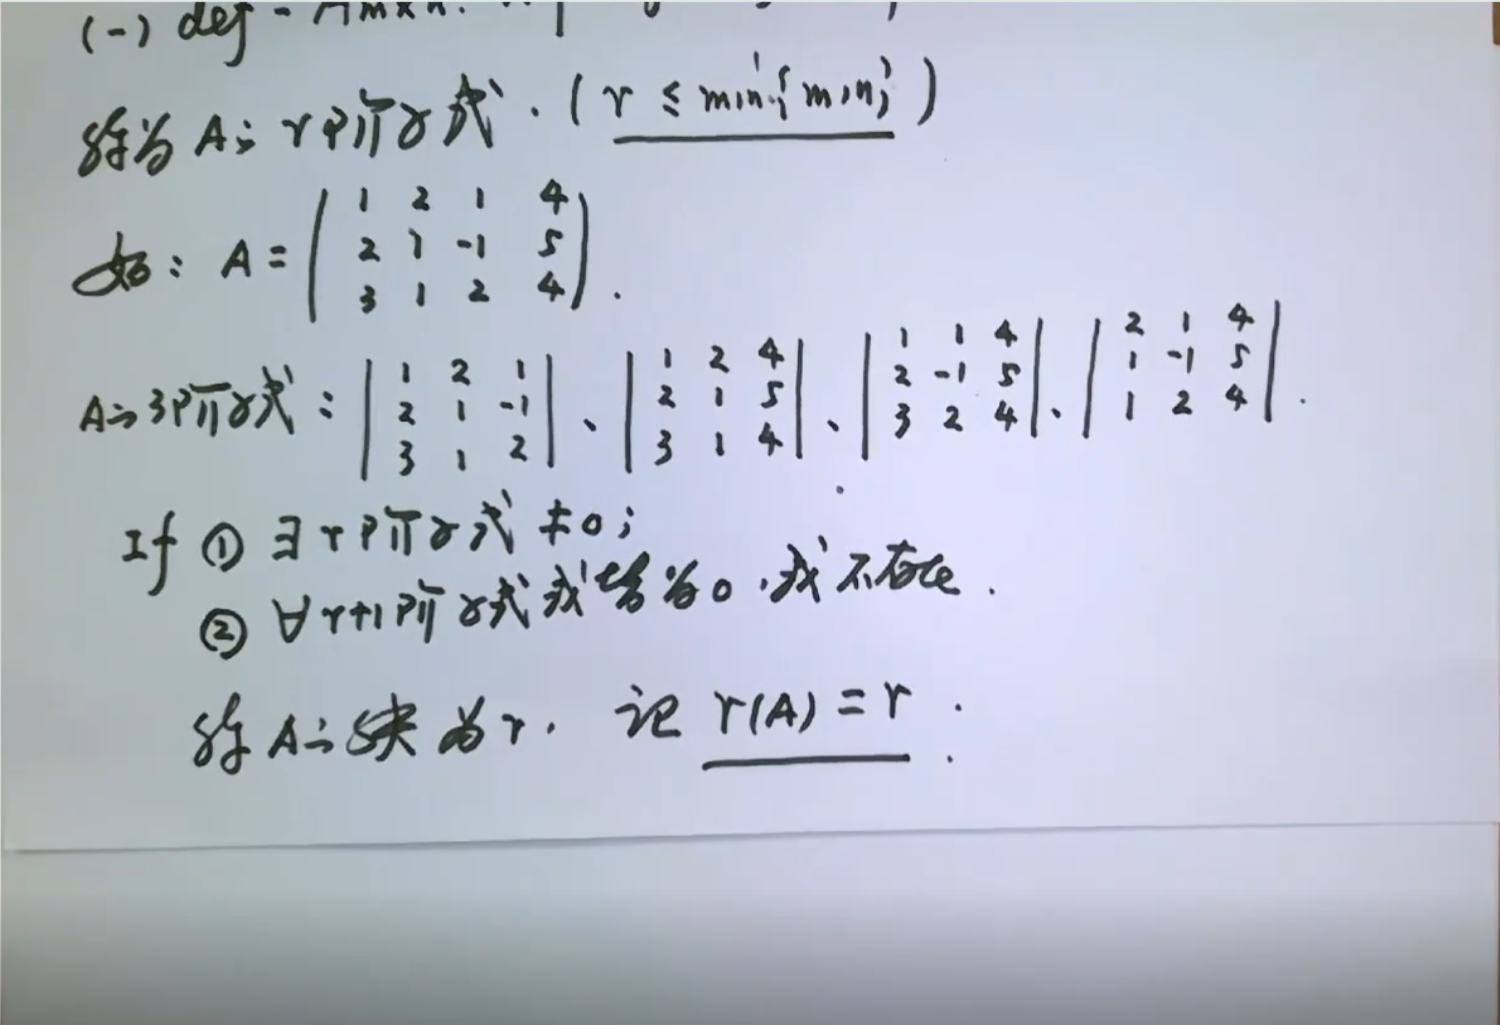 (一) def - Am×n.
称为A的r阶子式. (r ≤ min{m,n})
如: A = ( 1 2 1 4
2 1 -1 5
3 1 2 4 ).
A的3阶子式: | 1 2 1 | 、 | 1 2 4 | 、 | 1 1 4 | 、 | 2 1 4 |
| 2 1 -1 | | 2 1 5 | | 2 -1 5 | | 1 -1 5 |
| 3 1 2 | | 3 1 4 | | 3 2 4 | | 1 2 4 | .
If ① ∃ r阶子式 ≠ 0;
② ∀ r+1阶子式或皆为0,或不存在.
称A的秩为r. 记 r(A) = r.